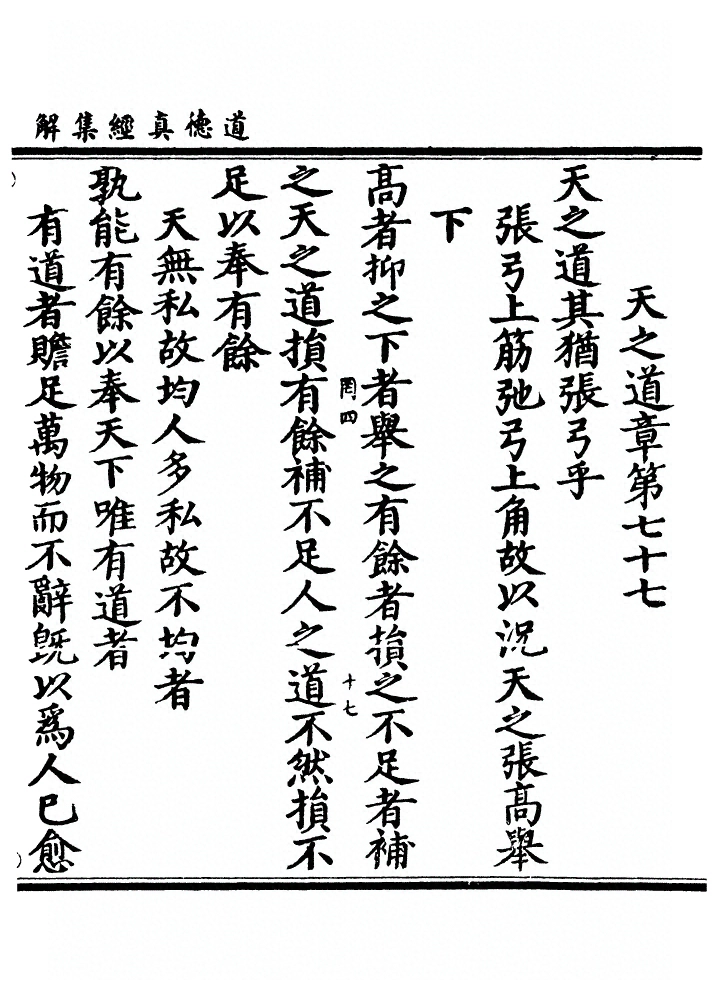 道德真經集解
天之道章第七十七
天之道其猶張弓乎
張弓上筋弛弓上角故以況天之張髙舉
下
髙者抑之下者舉之有餘者損之不足者補
罔四
十七
之天之道損有餘補不足人之道不然損不
足以奉有餘
天無私故均人多私故不均者
孰能有餘以奉天下唯有道者
有道者贍足萬物而不辭旣以爲人已愈